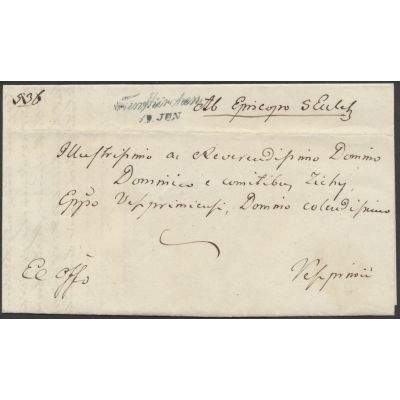 536
Fünfkirchen
19 JUN
Ab Episcopo
Illustrissimo ac Reverendissimo Domino
Dominico e comitibus Zichy
Eppo Vesprimiensi, Domino colendissimo
Ex Offo
Vesprimii